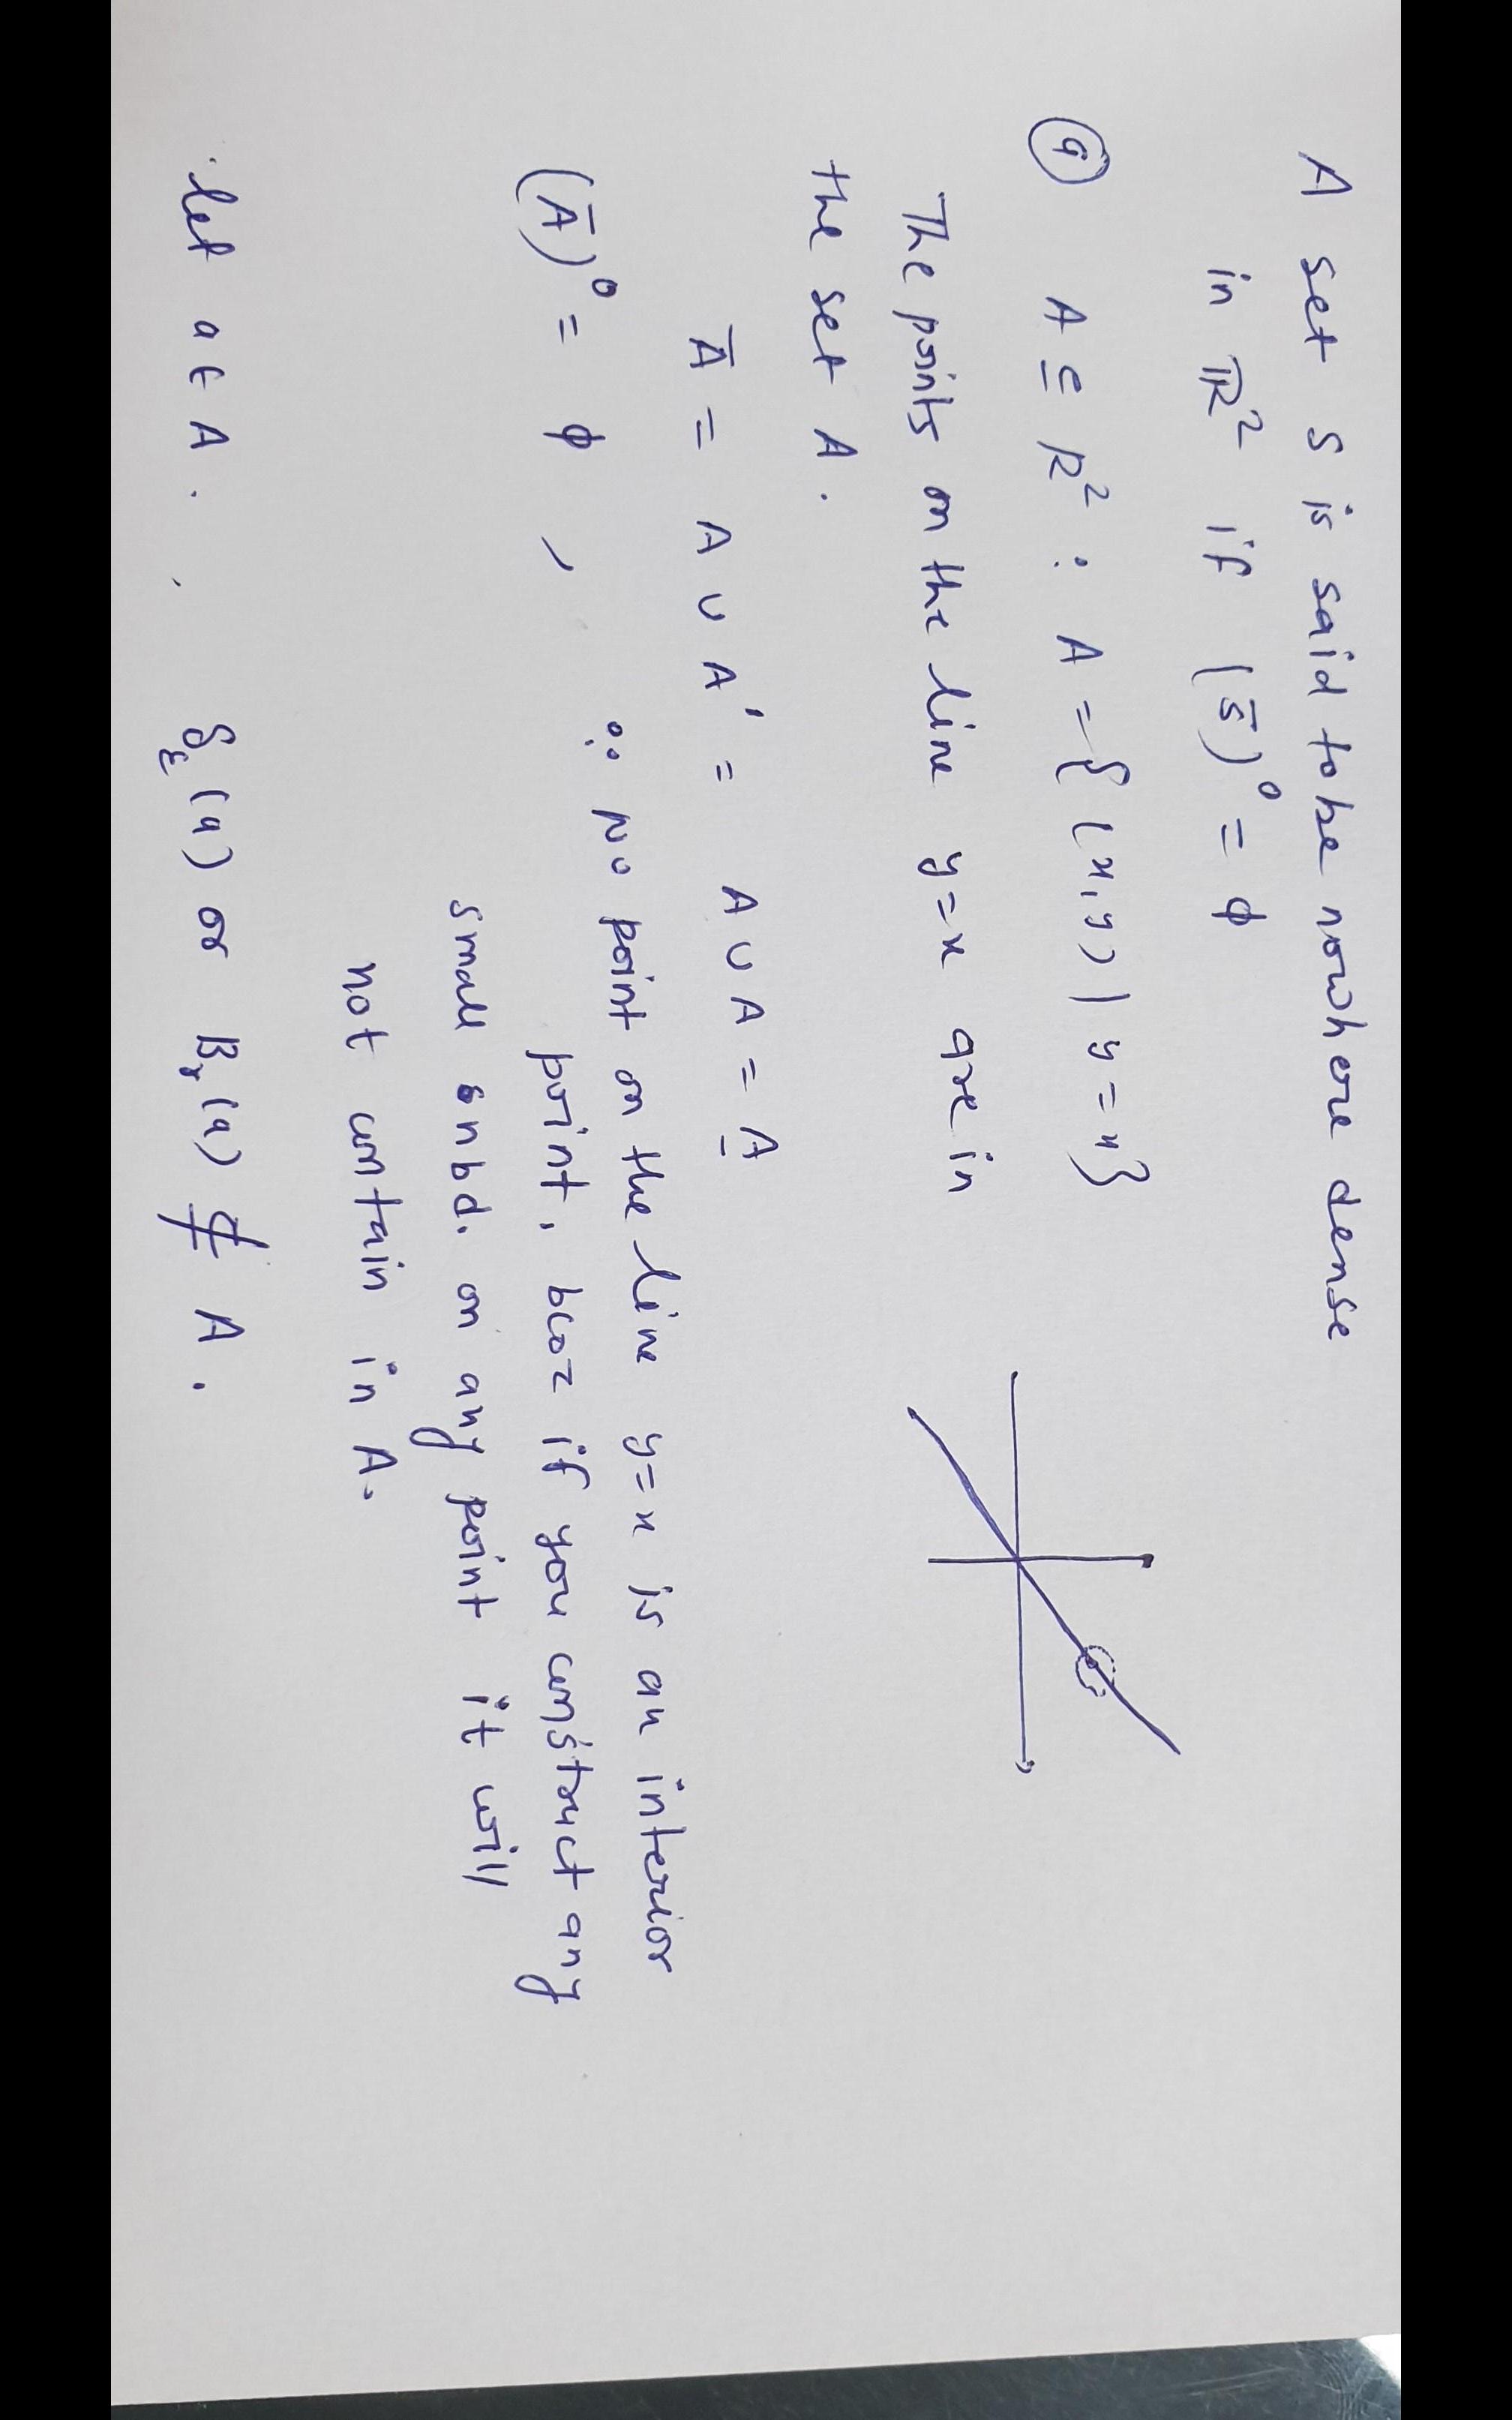 A set S is said to be nowhere dense
in ℝ² if (S̄)⁰ = ϕ
A ⊆ R² : A = {(x,y) | y=x}
The points on the line y=x are in
the set A.
Ā = A ∪ A' = A ∪ A = A
(Ā)⁰ = ϕ , ∵ No point on the line y=x is an interior
point, bcoz if you construct any
small nbd. on any point it will
not contain in A.
let a ∈ A. , S_ε(a) or B_r(a) ⊈ A.